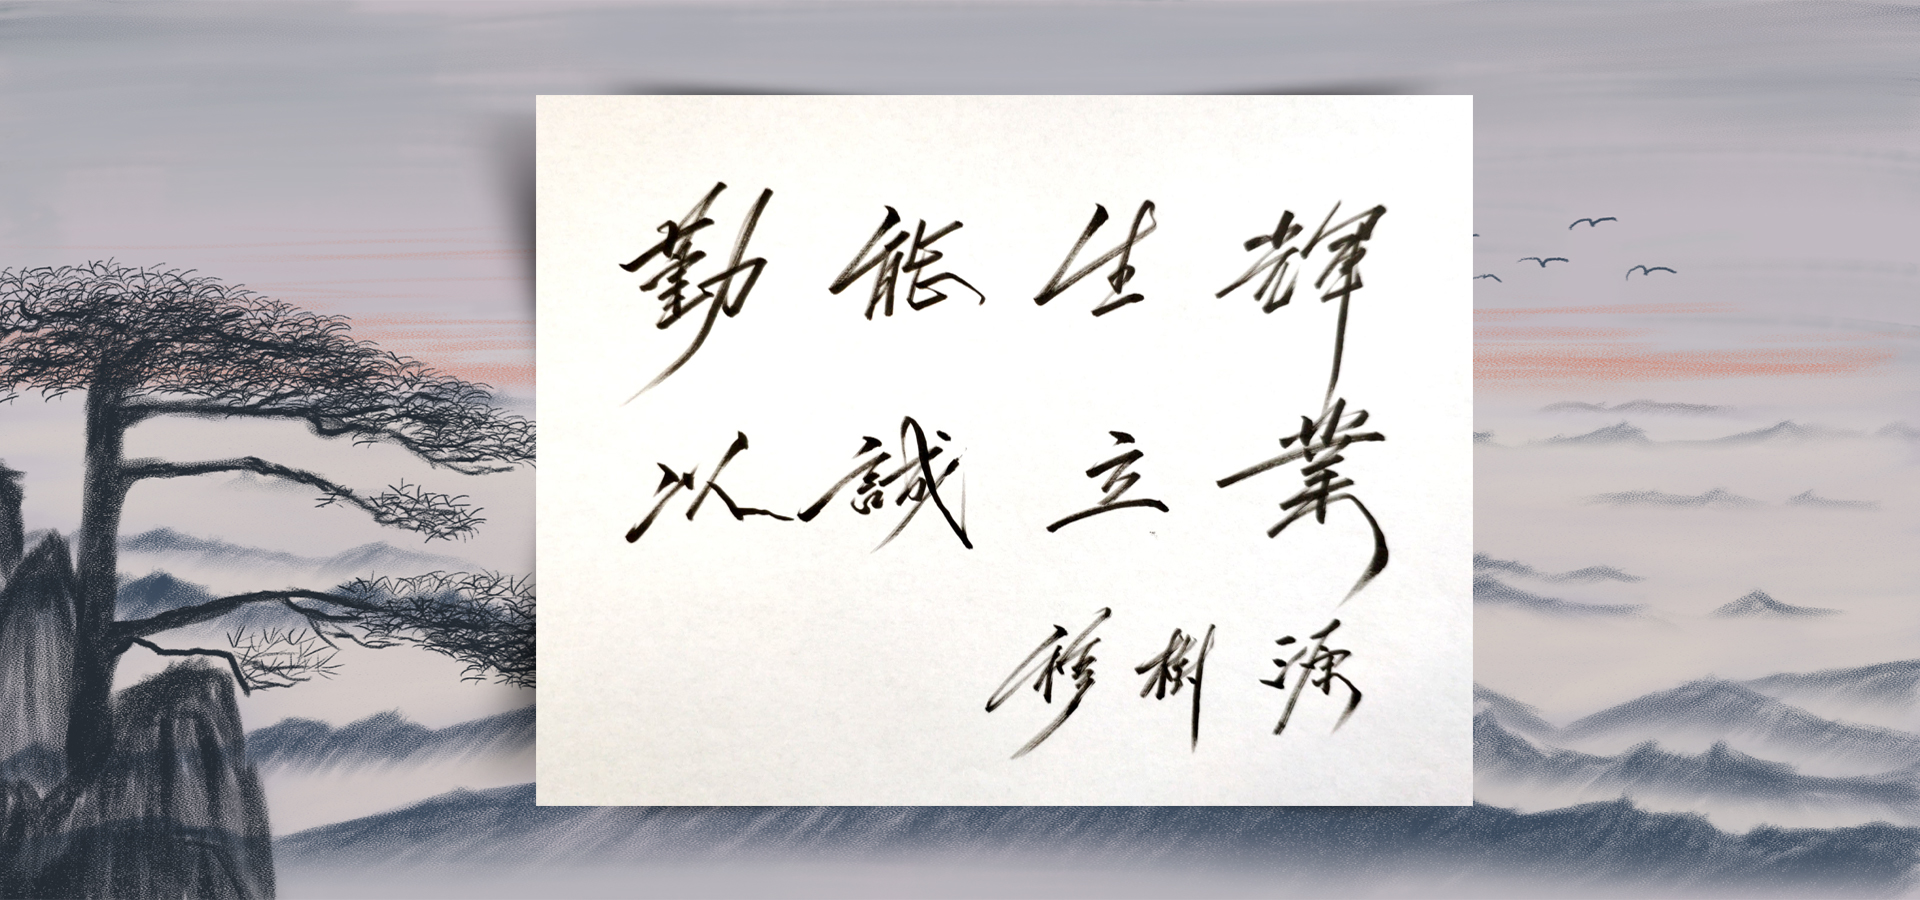 勤能生輝
以誠立業
穆樹源